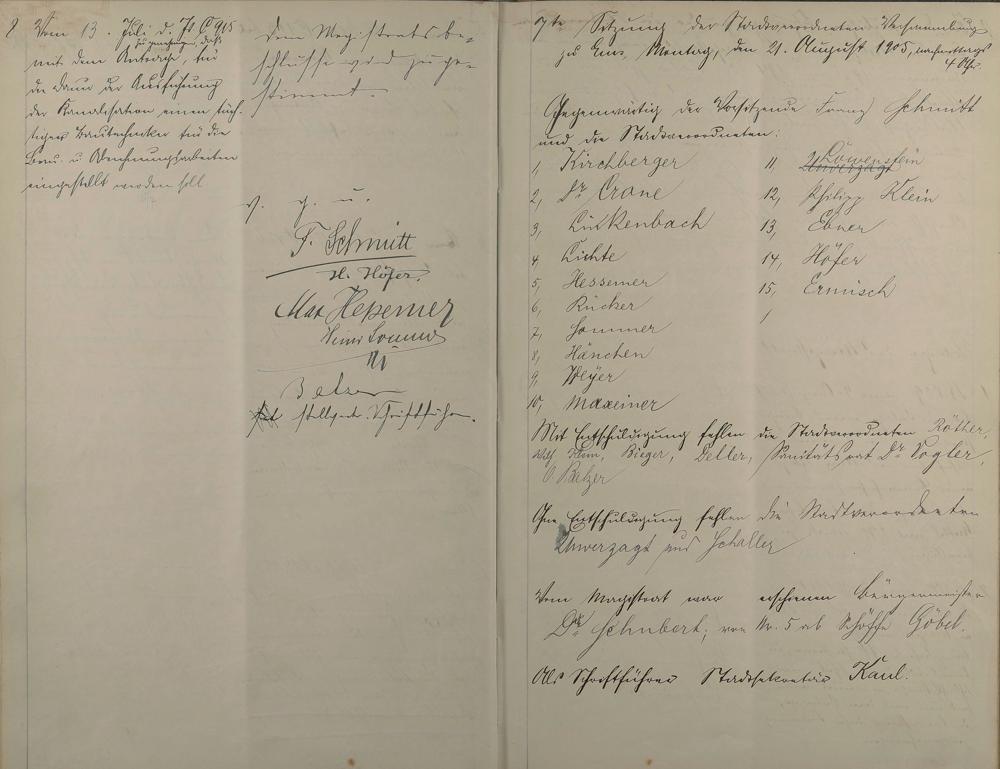 8 Vom 13. Juli d. Js C 905
zu genehmigen, daß
mit dem Antrage, für
die Dauer der Ausführung
der Kanalisation einen tüch-
tigen Bautechniker für die
Bau- u Abrechnungsarbeiten
eingestellt werden soll
Dem Magistratsbe-
schlusse wird zuge-
stimmt.
v. g. u.
F. Schmitt
H. Höfer.
Max Hessemer
Balzer
stellvertr. Schriftführer.
7te Sitzung der Stadtverordneten Versammlung
zu Ems, Montag, den 21. August 1905, nachmittags
4 Uhr.
Gegenwärtig der Vorsitzende Franz Schmitt
und die Stadtverordneten:
1, Kirchberger
2, Dr Crone
3, Linkenbach
4, Lichte
5, Hessemer
6, Rücker
7, Sommer
8, Hänchen
9, Weyer
10, Maxeiner
11, Unverzagt Löwenstein
12, Philipp Klein
13, Ebner
14, Höfer
15, Ermisch
Mit Entschuldigung fehlen die Stadtverordneten Rötter,
Wilh Klein, Bieger, Deller, Sanitätsrat Dr Vogler,
O Balzer
Ohne Entschuldigung fehlen die Stadtverordneten
Unverzagt und Schaller
Vom Magistrat war erschienen Bürgermeister
Dr Schubert, von Nr. 5 ab Schöffe Göbel.
Als Schriftführer Stadtsekretär Kaul.